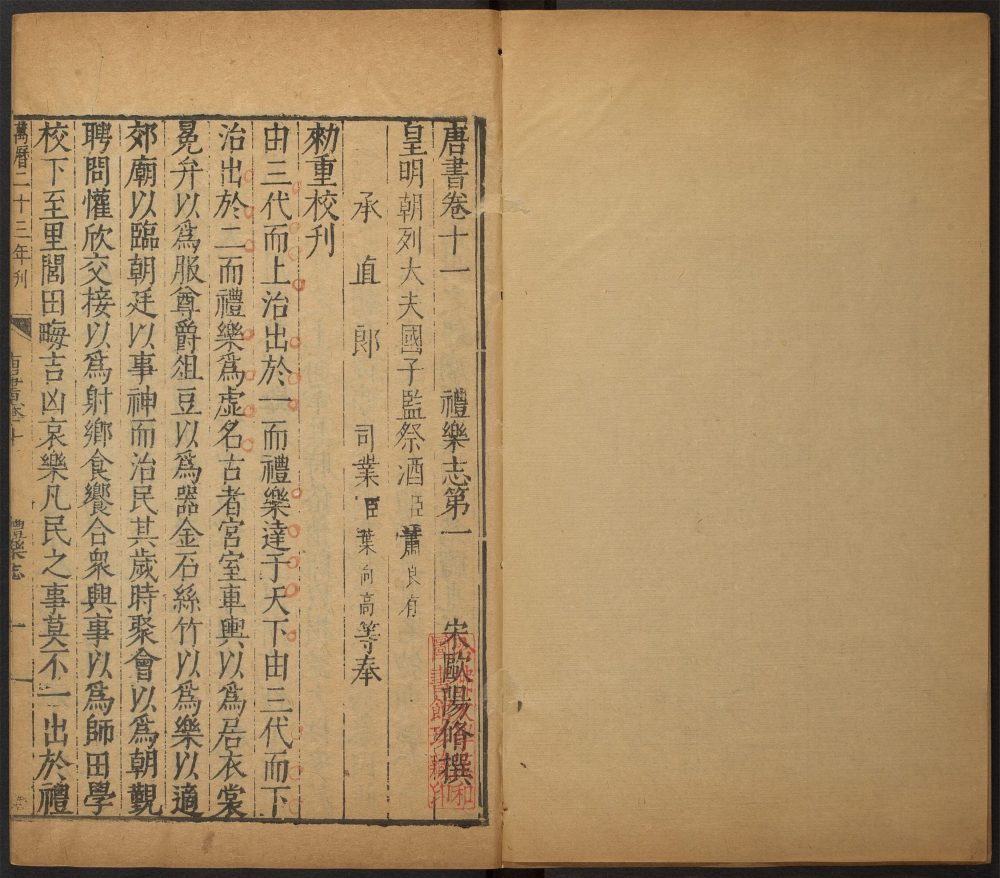 唐書卷十一 禮樂志第一 宋歐陽脩撰
皇明朝列大夫國子監祭酒臣蕭良有
承直郎司業臣葉向高等奉
勑重校刊
由三代而上治出於一而禮樂達于天下由三代而下
治出於二而禮樂爲虛名古者宮室車輿以爲居衣裳
冕弁以爲服尊爵俎豆以爲器金石絲竹以爲樂以適
郊廟以臨朝廷以事神而治民其歲時聚會以爲朝覲
聘問懽欣交接以爲射鄉食饗合衆興事以爲師田學
校下至里閭田畮吉凶哀樂凡民之事莫不一出於禮
萬曆二十三年刊
唐書卷十一
禮樂志
一